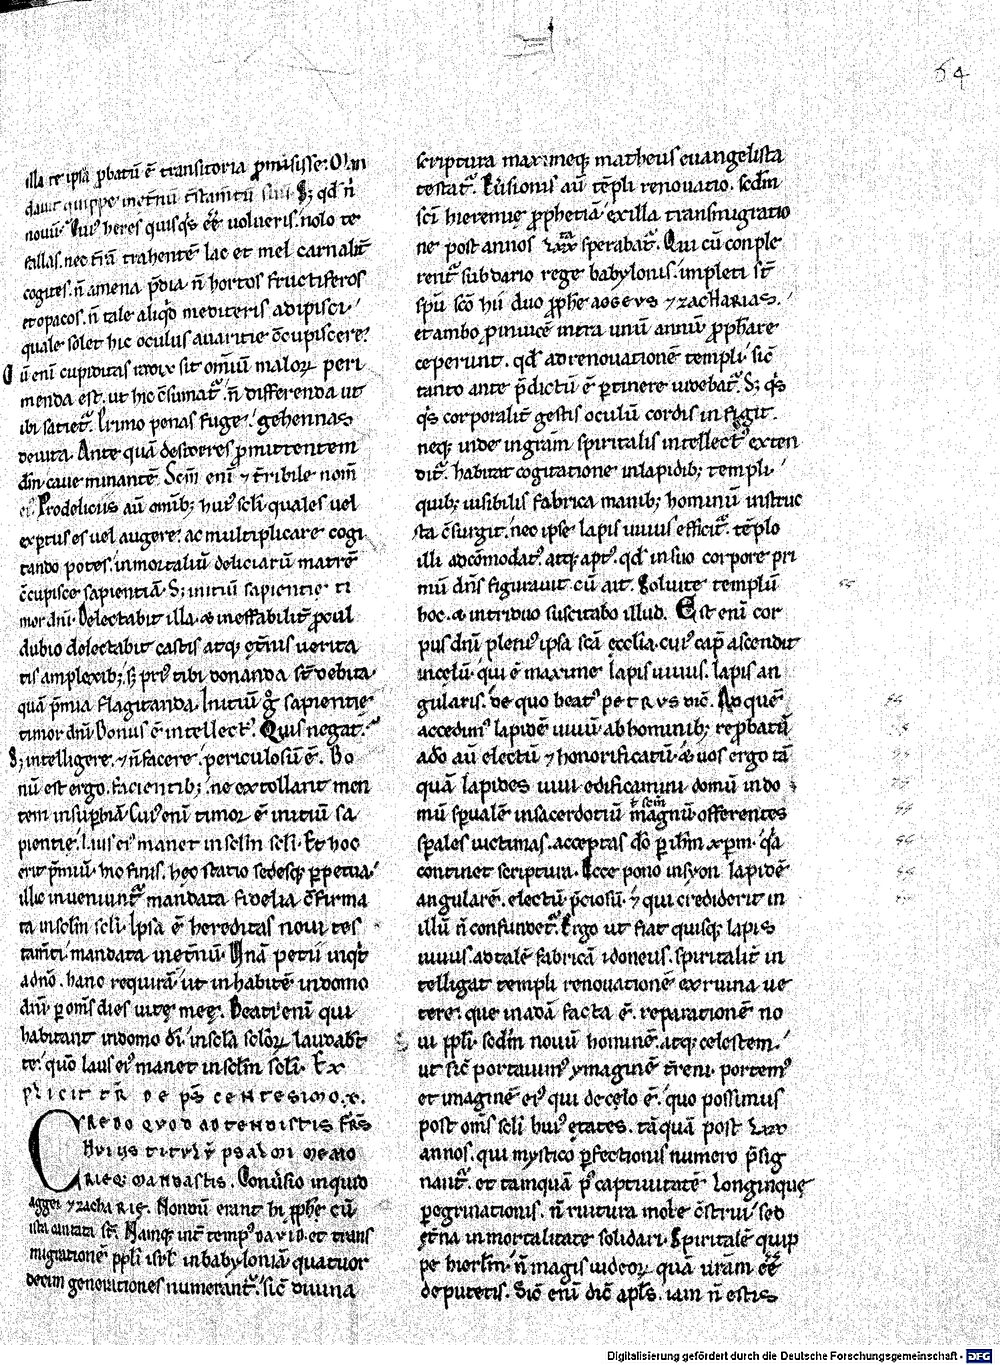 64
illa re ipsa ꝓbatū ē transitoria ꝓmisisse. Olim
dauit quippe
nouū. huiꝰ heres quisqs ēē uolueris. nolo te
fallas. nec trā trahentē lac et mel carnalit
cogites. n̄ amena p̄dia n̄ hortos fructiferos
et opacos. n̄ tale aliqd mediteris adipisci
quale solet hic oculus auaritie c̄cupiscere.
Cū enī cupiditas radix sit omīū maloꝝ peri
menda est. ut hic c̄sumat. n̄ differenda ut
ibi satiet. Primo penas fuge. gehennas
deuita. Ante quā desideres ꝓmittentem
dm̄ caue minantē. Scm̄ enī ⁊ tribile nom̄
eiꝰ. Pro deliciis aū omībꝫ huiꝰ scli quales uel
exptus es uel augere. ac multiplicare cogi
tando potes. inmortaliū deliciarū matrē
c̄cupisce sapientiā. Sꝫ initiū sapientie ti
mor dnī. Delectabit illa. & ineffabilit ꝓcul
dubio delectabit castis atqꝫ et̄nis uerita
tis amplexibꝫ. sꝫ priꝰ tibi donanda st̄ debita
quā p̄mia flagitanda. Initiū g̊ sapientie
timor dnī. Bonus ē intellectꝰ. Quis negat.
Sꝫ intelligere. ⁊ n̄ facere. periculosū ē. Bo
nū est ergo. facientibꝫ. ne extollant men
tem in supbiā. Cuiꝰ enī timor ē initiū sa
pientie. laus eiꝰ manet in sclm̄ scli. Et hoc
erit p̄miū. hic finis. hec statio sedesqꝫ ꝑpetua.
illic inueniunt mandata fidelia c̄firma
ta in sclm̄ scli. Ipsa ē hereditas noui tes
tam̄ti. mandata in et̄nū. Unā petii inqt
a dnō. hanc requirā. ut inhabitē in domo
dnī ꝑ om̄s dies uitę meę. Beati enī qui
habitant in domo dnī. in scla scloꝝ laudabt
te. quō laus eiꝰ manet in sclm̄ scli. Ex
plicit tr̄ de ps̄ centesimo.x.
CREDO QVOD ADTENDISTIS FRS̄
huius tituly psalmi memo
rieqꝫ mandastis. Conuersio inquid
aggei ⁊ zacharię. Nondū erant hi ꝓphe cū
ista cantata st̄. Namqꝫ int̄ tempꝰ DAVID. et trans
migrationē ppli isrl in babyloniā quatuor
decim generationes numerant. sic̄ diuina
scriptura maximeqꝫ matheus euangelista
testat. Euersionis aū tēpli renouatio. scdm̄
sc̄i hieremię ꝓphetiā ex illa transmigratio
ne post annos lxx sperabat. Qui cū conple
rent sub dario rege babylonis. impleti st̄
spū scō hii duo ꝓphe aggevs ⁊ zacharias.
et ambo ꝓinuicē intra unū annū ꝓphare
ceperunt. qd ad renouationē templi sic̄
tanto ante p̄dictū ē ptinere uidebat. Sꝫ qs
qs corporalit gestis oculū cordis infigit.
neqꝫ inde in grām spiritalis intellectꝰ exten
dit. habitat cogitatione in lapidibꝫ templi
quibꝫ uisibilis fabrica manibꝫ hominū instruc
ta c̄surgit. nec ipse lapis uiuus efficit. tēplo
illi adcōmodatꝰ. atqꝫ aptꝰ. qd in suo corpore pri
mū dn̄s figurauit cū ait. Soluite templū
hoc. & in triduo suscitabo illud. Est enī cor
pus dnī pleniꝰ ipsa scā ęcclia. cuiꝰ capꝰ ascendit
in celū. qui ē maxime lapis uiuus. lapis an
gularis. de quo beatꝰ petrvs dic̄. Ad quē
accedimꝰ lapidē uiuū ab hominibꝫ reprobatū
a dō aū electū ⁊ honorificatū. & uos ergo tā
quā lapides uiui edificamini domū in do
mū spualē in sacerdotiū magnū ⁊ scm̄ offerentes
spales uictimas. acceptas dō ꝑ ihm̄ xpm. qa
continet scriptura. Ecce pono in syon lapidē
angularē. electū p̄ciosū. ⁊ qui crediderit in
illū n̄ confundet. Ergo ut fiat quisqꝫ lapis
uiuus. ad talē fabricā idoneus. spiritalit in
telligat templi renouationē ex ruina ue
tere. que in adā facta ē. reparationē no
ui ppli. scdm̄ nouū hominē. atqꝫ celestem.
ut sic̄ portauimꝰ ymaginē tr̄eni. portemꝰ
et imaginē eiꝰ qui de celo ē. quo possimus
post om̄s scli huiꝰ ętates. tāquā post lxx
annos. qui mystico ꝑfectionis numero p̄sig
nant. et tamquā pꝰ captiuitatē longinquę
peregrinationis. n̄ ruitura mole c̄strui sed
ęt̄na inmortalitate solidari. Spiritalē quip
pe hierlm̄. n̄ magis uideoꝝ quā uram ēē
deputetis. Sic̄ enī dic̄ apls. iam n̄ estis
Digitalisierung gefördert durch die Deutsche Forschungsgemeinschaft - DFG